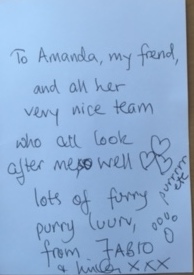 To Amanda, my frend,
and all her
very nice team
who all look
after me so well
purrrrrr
etc
lots of furry
purry luurv,
from FABIO
& XXX